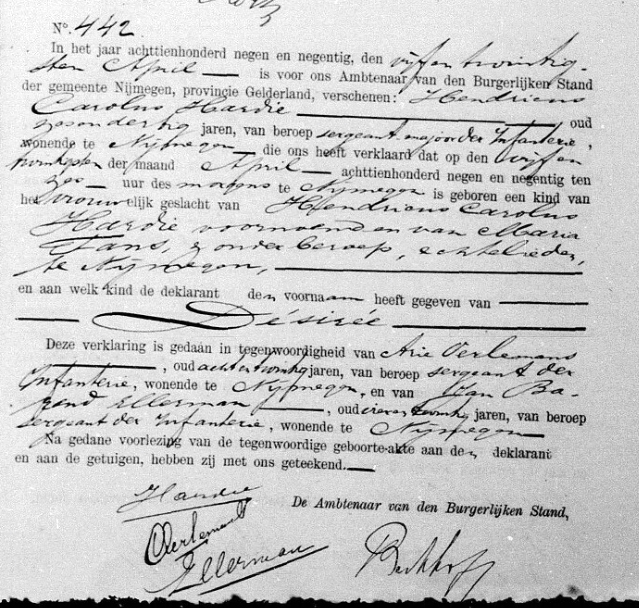 No. 442.
In het jaar achttienhonderd negen en negentig, den vijf en twintig-
sten April is voor ons Ambtenaar van den Burgerlijken Stand
der gemeente Nijmegen, provincie Gelderland, verschenen: Hendricus
Carolus Hardie oud
zesendertig jaren, van beroep sergeant majoor der Infanterie,
wonende te Nijmegen die ons heeft verklaard dat op den vijf en
twintigsten der maand April achttienhonderd negen en negentig ten
zes uur des morgens te Nijmegen is geboren een kind van
het vrouwelijk geslacht van Hendricus Carolus
Hardie voornoemd en van Maria
Fans, zonder beroep, echtelieden,
te Nijmegen,
en aan welk kind de deklarant den voornaam heeft gegeven van
Désirée
Deze verklaring is gedaan in tegenwoordigheid van Arie Oerlemans
, oud achtentwintig jaren, van beroep sergeant der
Infanterie, wonende te Nijmegen, en van Jan Ba-
rend Ellerman, oud vierentwintig jaren, van beroep
sergeant der Infanterie, wonende te Nijmegen
Na gedane voorlezing van de tegenwoordige geboorte-akte aan den deklarant
en aan de getuigen, hebben zij met ons geteekend.
Hardie
De Ambtenaar van den Burgerlijken Stand,
Oerlemans
Ellerman